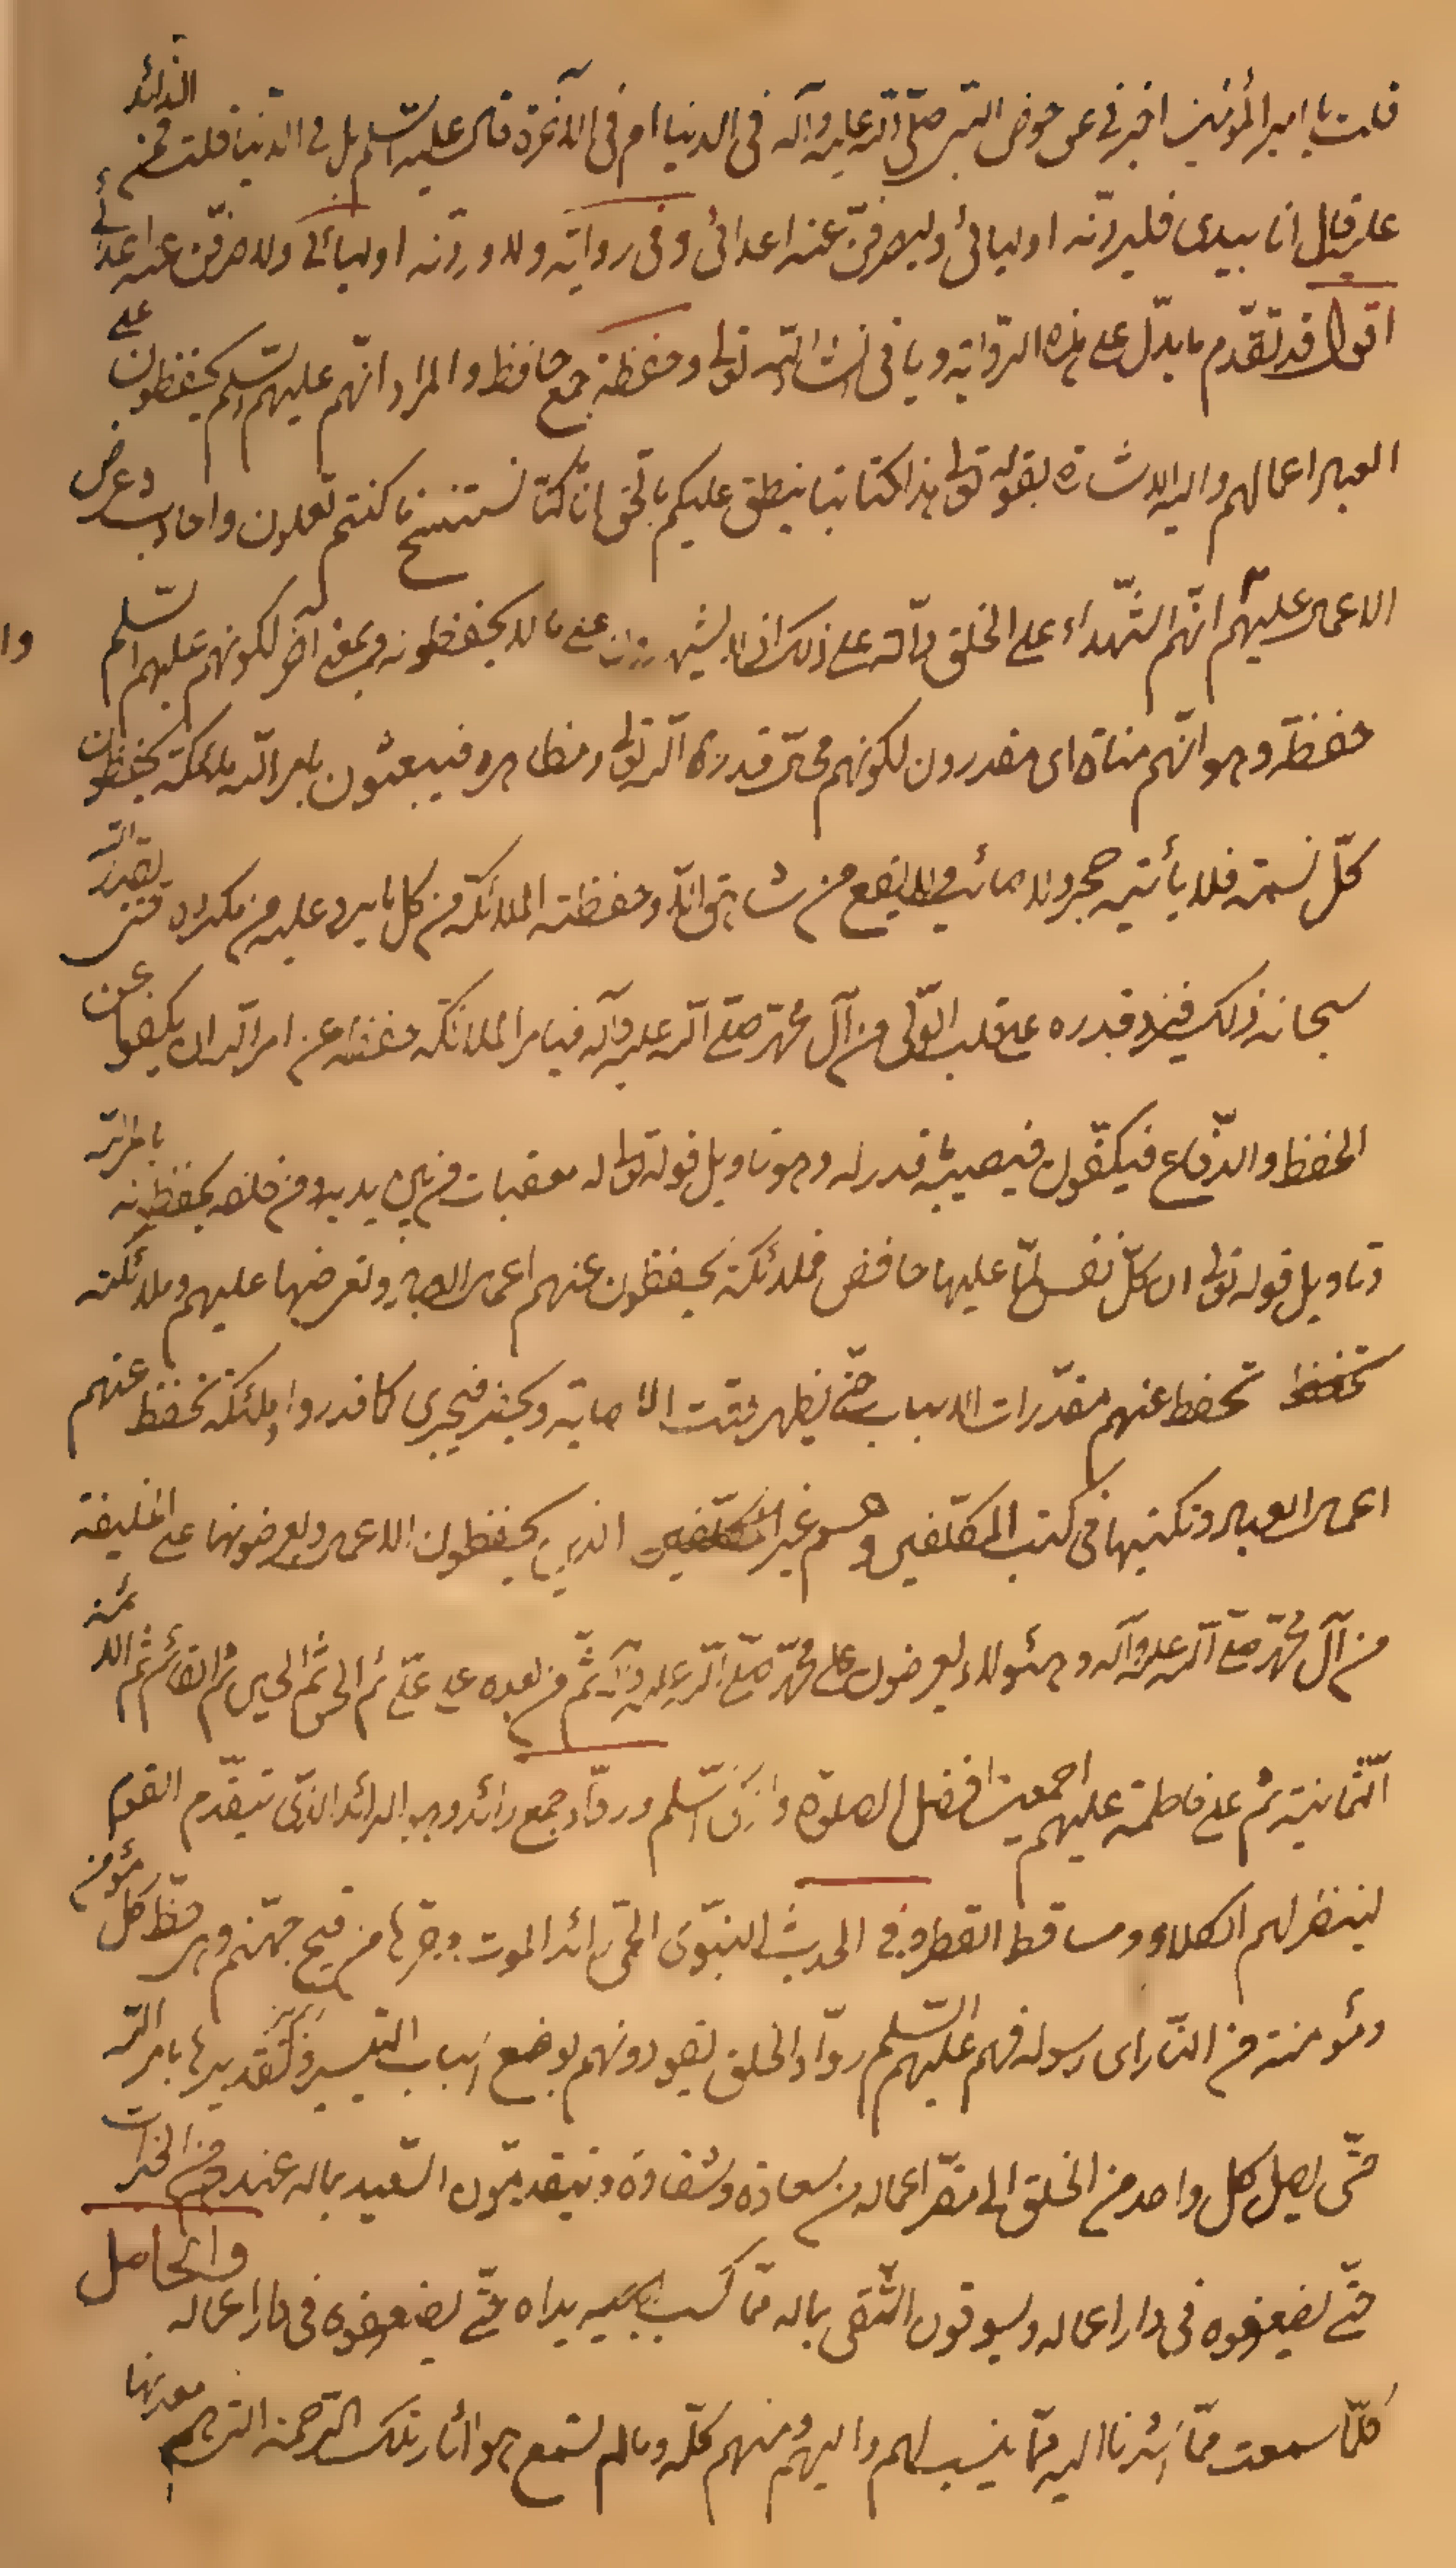 قلت يا امير المؤمنين اخبرني عن حوض النبي صلّى الله عليه وآله في الدنيا ام في الآخرة قال عليه السلم بل في الدنيا قلت فمن الذائد
عليه قال انا بيدي فليردنّه اوليائي وليصرفنّ عنه اعدائي وفي رواية ولاوردنّه اوليائي ولاصرفنّ عنه اعدائي
اقول قد تقدّم ما يدلّ على هذه الرّواية ويأتي انشاء الله تعالى وحفظة جمع حافظ والمراد انّهم عليهم السلم يحفظون على
العباد اعمالهم واليه الاشارة بقوله تعالى هذا كتابنا ينطق عليكم بالحقّ انّا كنّا نستنسخ ما كنتم تعملون واحاديث عرض
الاعمال عليهم انّهم الشّهداء على الخلق دالّة على ذلك اذ لا يشهدون على ما لا يحفظونه وبمعنى آخر لكونهم عليهم السّلم
حفظة وهو انّهم مناة اى مقدرون لكونهم محالّ قدرة الله تعالى ومظاهره فيبعثون بامر الله ملائكة يحفظون
كلّ نسمة فلا يأتيه حجر ولا صائب ولا يقع من شاهق الّا وحفظته الملائكة من كل ما يرد عليه من مكروه فتى يقدّر الله
سبحانه ذلك فينزل قدره على قلب الوليّ من آل محمّد صلّى الله عليه وآله فيأمر الملائكة حفظته عن امر الله ان يكفّوا عن
الحفظ والدّفاع فيكفّون فيصيبه ما قدر له وهو تاويل قوله تعالى له معقبات من بين يديه ومن خلفه يحفظونه بامر الله
وتاويل قوله تعالى ان كلّ نفس لمّا عليها حافض فملائكة يحفظون عنهم اعمال العباد وتعرضها عليهم وملائكته
تحفظ تحفظ عنهم مقدّرات الاسباب حتّى يظهر وقت الاصابة ويحضر فيجري كما قدروا وملئكة تحفظ عنهم
اعمال العباد وتكتبها في كتب المكلّفين وهم غير المكلّفين الذين يحفظون الاعمال ويعرضونها على الخليفة
من آل محمّد صلّى الله عليه وآله وهؤلاء يعرضون على محمّد صلّى الله عليه وآله ثمّ من بعده على عليّ ثم الحسن ثم الحسين ثم القائم ثم الائمة
الثّمانية ثم على فاطمة عليهم اجمعين افضل الصلوة وازكى السّلم وروّاد جمع رائد وهو الرائد الذي يتقدّم القوم
لينظر لهم الكلاء ومساقط القطر وفي الحديث النبويّ الحمّى رائد الموت وحرّها من فيح جهنّم وهي حظّ كل مؤمن
ومؤمنة من النّار اى رسوله فهم عليهم السّلم روّاد الخلق يقودونهم بوضع اسباب التيسير وتقديرها بامر الله
حتّى يصل كل واحد من الخلق الى مقرّ اعماله من سعادة وشقاوة ويتقدّمون السّعيد بماله عندهم من الخيرات
حتّى يضعوه في دار اعماله ويسوقون الشّقي بماله ممّا كسبت يداه حتّى يضعوه في دار اعماله والحاصل
كلّما سمعت ممّا اشرنا اليه ممّا ينسب لهم واليهم ومنهم كلّه وما لم تسمع هو اثار تلك الرّحمة الّتي هم معدنها